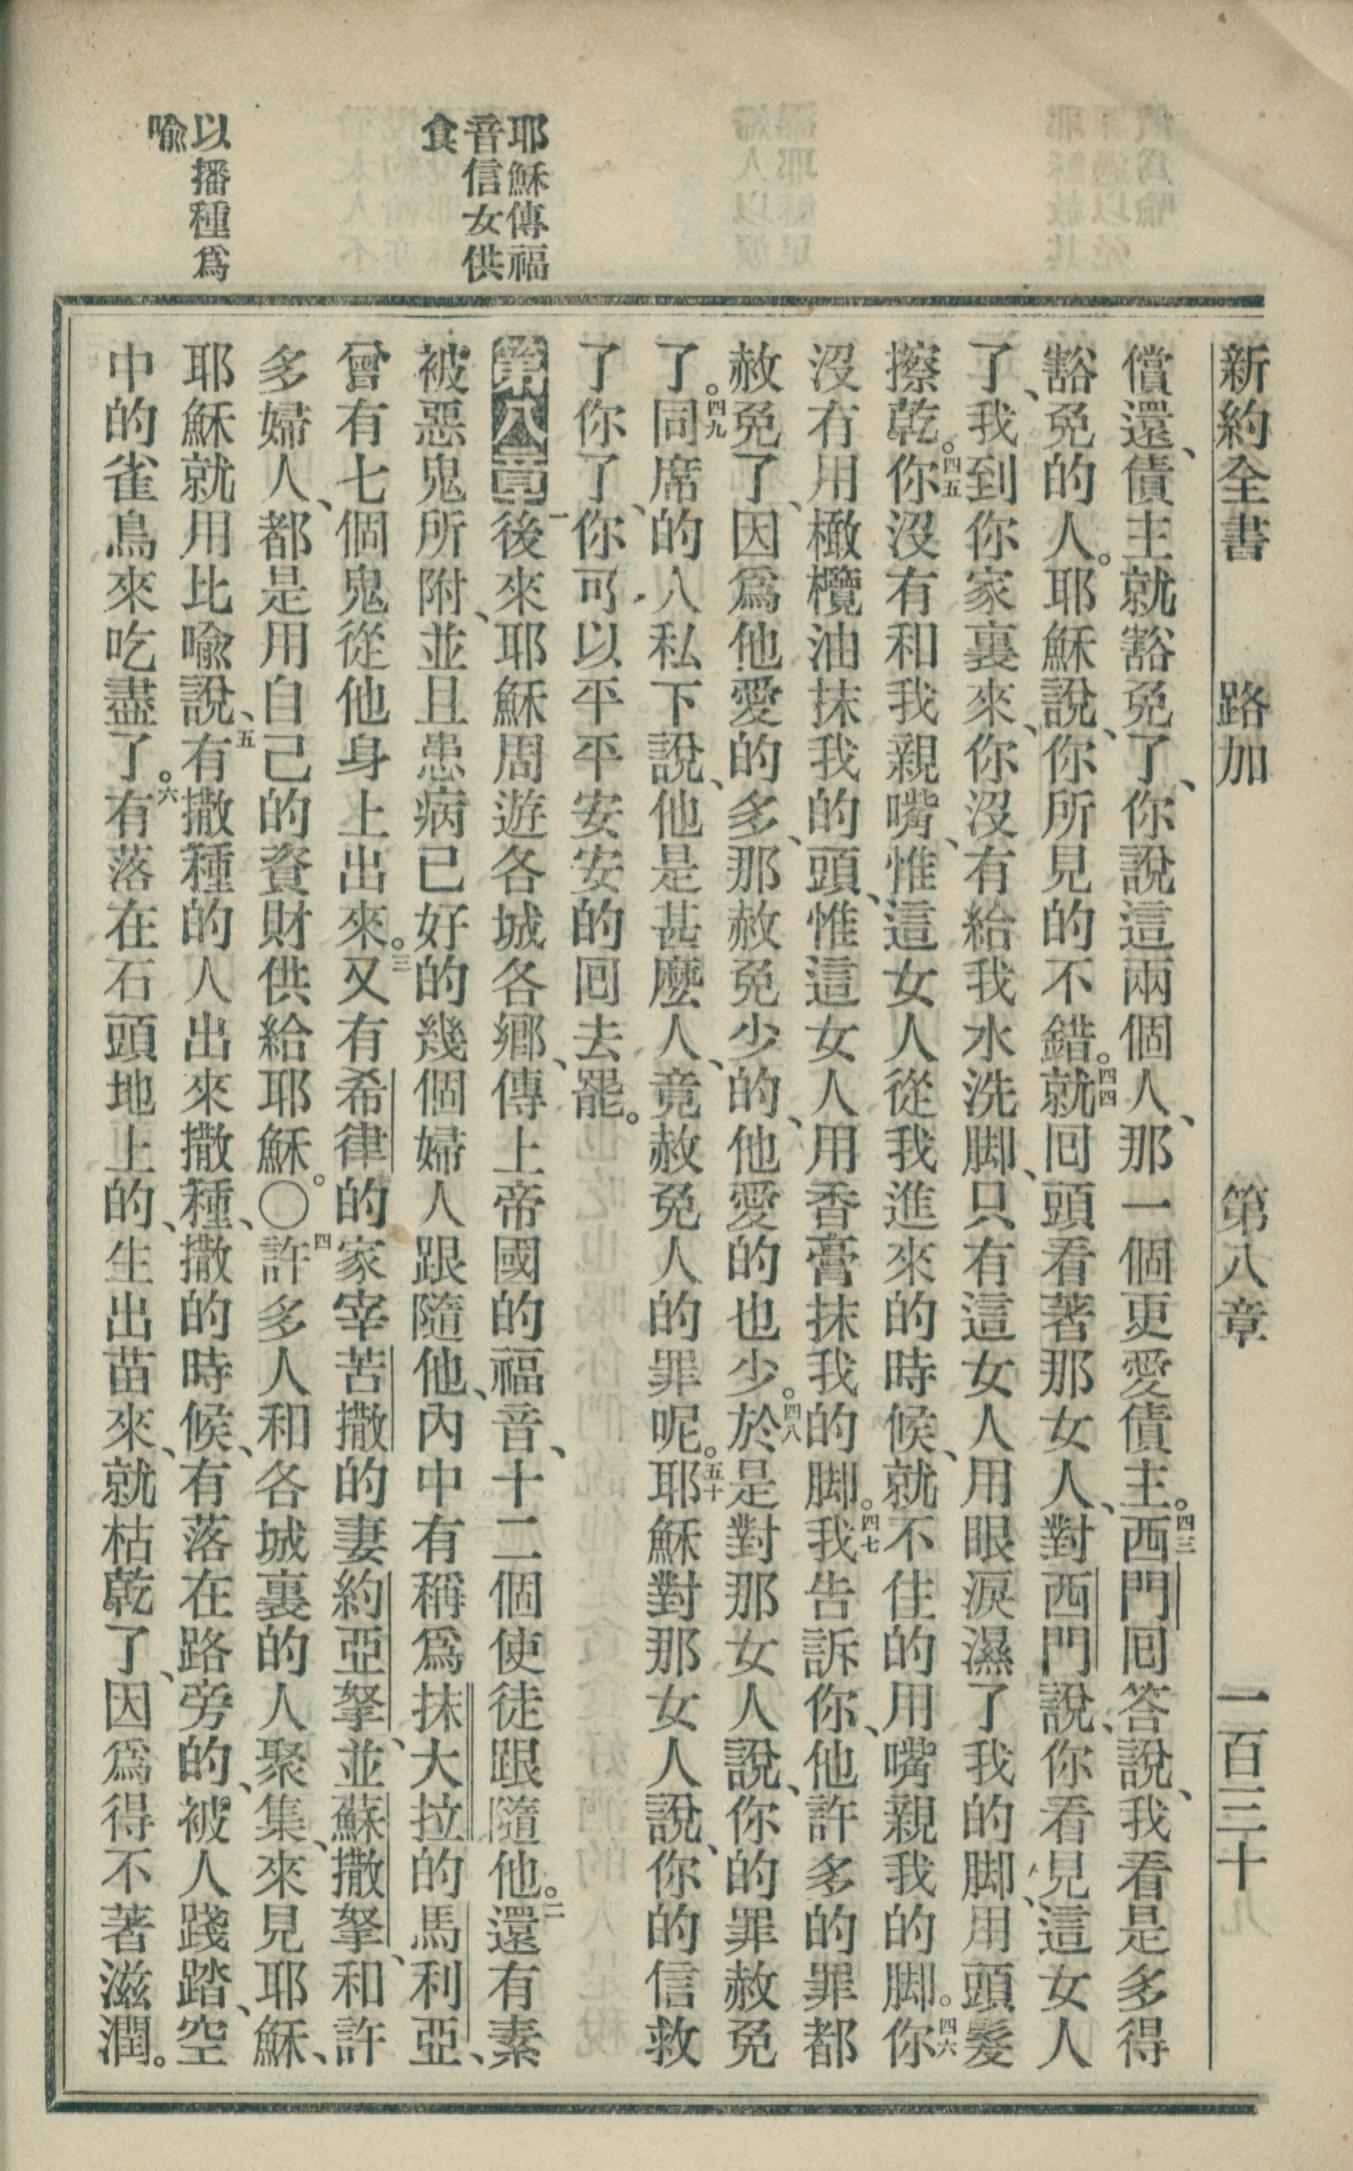 新約全書 路加 第八章 一百三十
償還、債主就豁免了、你說這兩個人、那一個更愛債主。四三西門回答說、我看是多得
豁免的人。耶穌說、你所見的不錯。四四就回頭看著那女人、對西門說、你看見這女人
了、我到你家裏來、你沒有給我水洗脚、只有這女人用眼淚濕了我的脚、用頭髮
擦乾。四五你沒有和我親嘴、惟這女人從我進來的時候、就不住的用嘴親我的脚。四六你
沒有用橄欖油抹我的頭、惟這女人用香膏抹我的脚。四七我告訴你、他許多的罪都
赦免了、因爲他愛的多、那赦免少的、他愛的也少。四八於是對那女人說、你的罪赦免
了。四九同席的人私下說、他是甚麼人、竟赦免人的罪呢。五十耶穌對那女人說、你的信救
了你了、你可以平平安安的回去罷。
第八章 一後來耶穌周遊各城各鄉、傳上帝國的福音、十二個使徒跟隨他。二還有素
被惡鬼所附、並且患病已好的幾個婦人跟隨他、內中有稱爲抹大拉的馬利亞、
曾有七個鬼從他身上出來。三又有希律的家宰苦撒的妻約亞拏、並蘇撒拏、和許
多婦人、都是用自己的資財供給耶穌。〇四許多人和各城裏的人聚集、來見耶穌、
耶穌就用比喻說、五有撒種的人出來撒種、撒的時候、有落在路旁的、被人踐踏、空
中的雀鳥來吃盡了。六有落在石頭地上的、生出苗來、就枯乾了、因爲得不著滋潤。
耶穌傳福
音信女供
食
以播種爲
喻